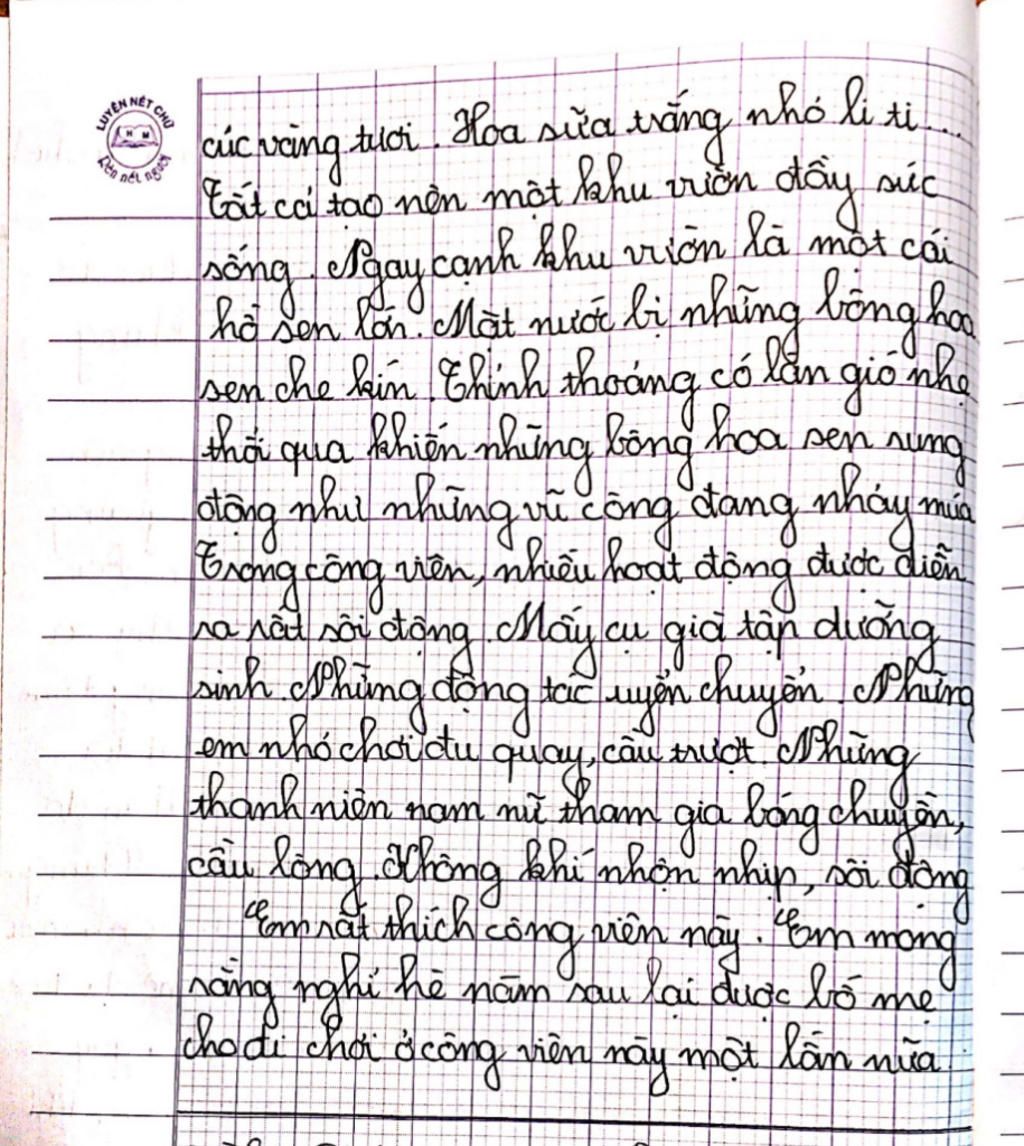 LUYỆN NÉT CHỮ
H M
Rèn nét người
cúc vàng tươi. Hoa sữa trắng nhỏ li ti...
Tất cả tạo nên một khu vườn đầy sức
sống. Ngay cạnh khu vườn là một cái
hồ sen lớn. Mặt nước bị những bông hoa
sen che kín. Thỉnh thoảng có làn gió nhẹ
thổi qua khiến những bông hoa sen rung
động như những vũ công đang nhảy múa
Trong công viên, nhiều hoạt động được diễn
ra rất sôi động. Mấy cụ già tập dưỡng
sinh. Những động tác uyển chuyển. Những
em nhỏ chơi đu quay, cầu trượt. Những
thanh niên nam nữ tham gia bóng chuyền,
cầu lông. Không khí nhộn nhịp, sôi động
Em rất thích công viên này. Em mong
rằng nghỉ hè năm sau lại được bố mẹ
cho đi chơi ở công viên này một lần nữa.